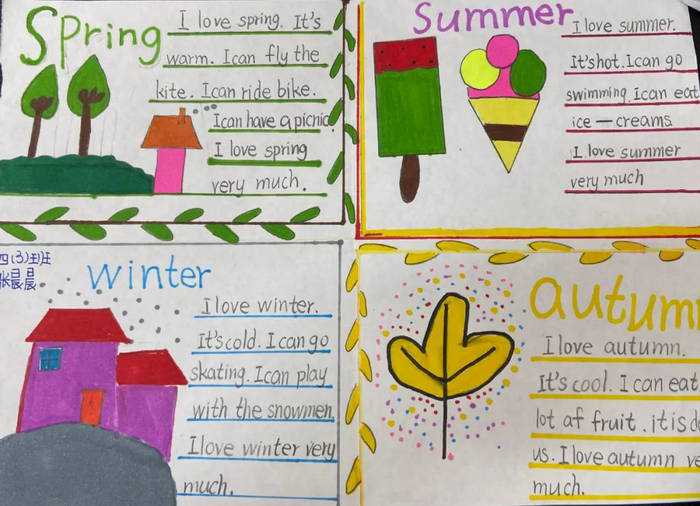 Spring
I love spring. It's
warm. I can fly the
kite. I can ride bike.
I can have a picnic.
I love spring
very much.
Summer
I love summer.
It's hot. I can go
swimming. I can eat
ice—creams
I love summer
very much
四(3)班
张晨晨
winter
I love winter.
It's cold. I can go
skating. I can play
with the snowmen.
I love winter very
much.
autum
I love autumn.
It's cool. I can eat
lot af fruit. it is de
us. I love autumn ve
much.